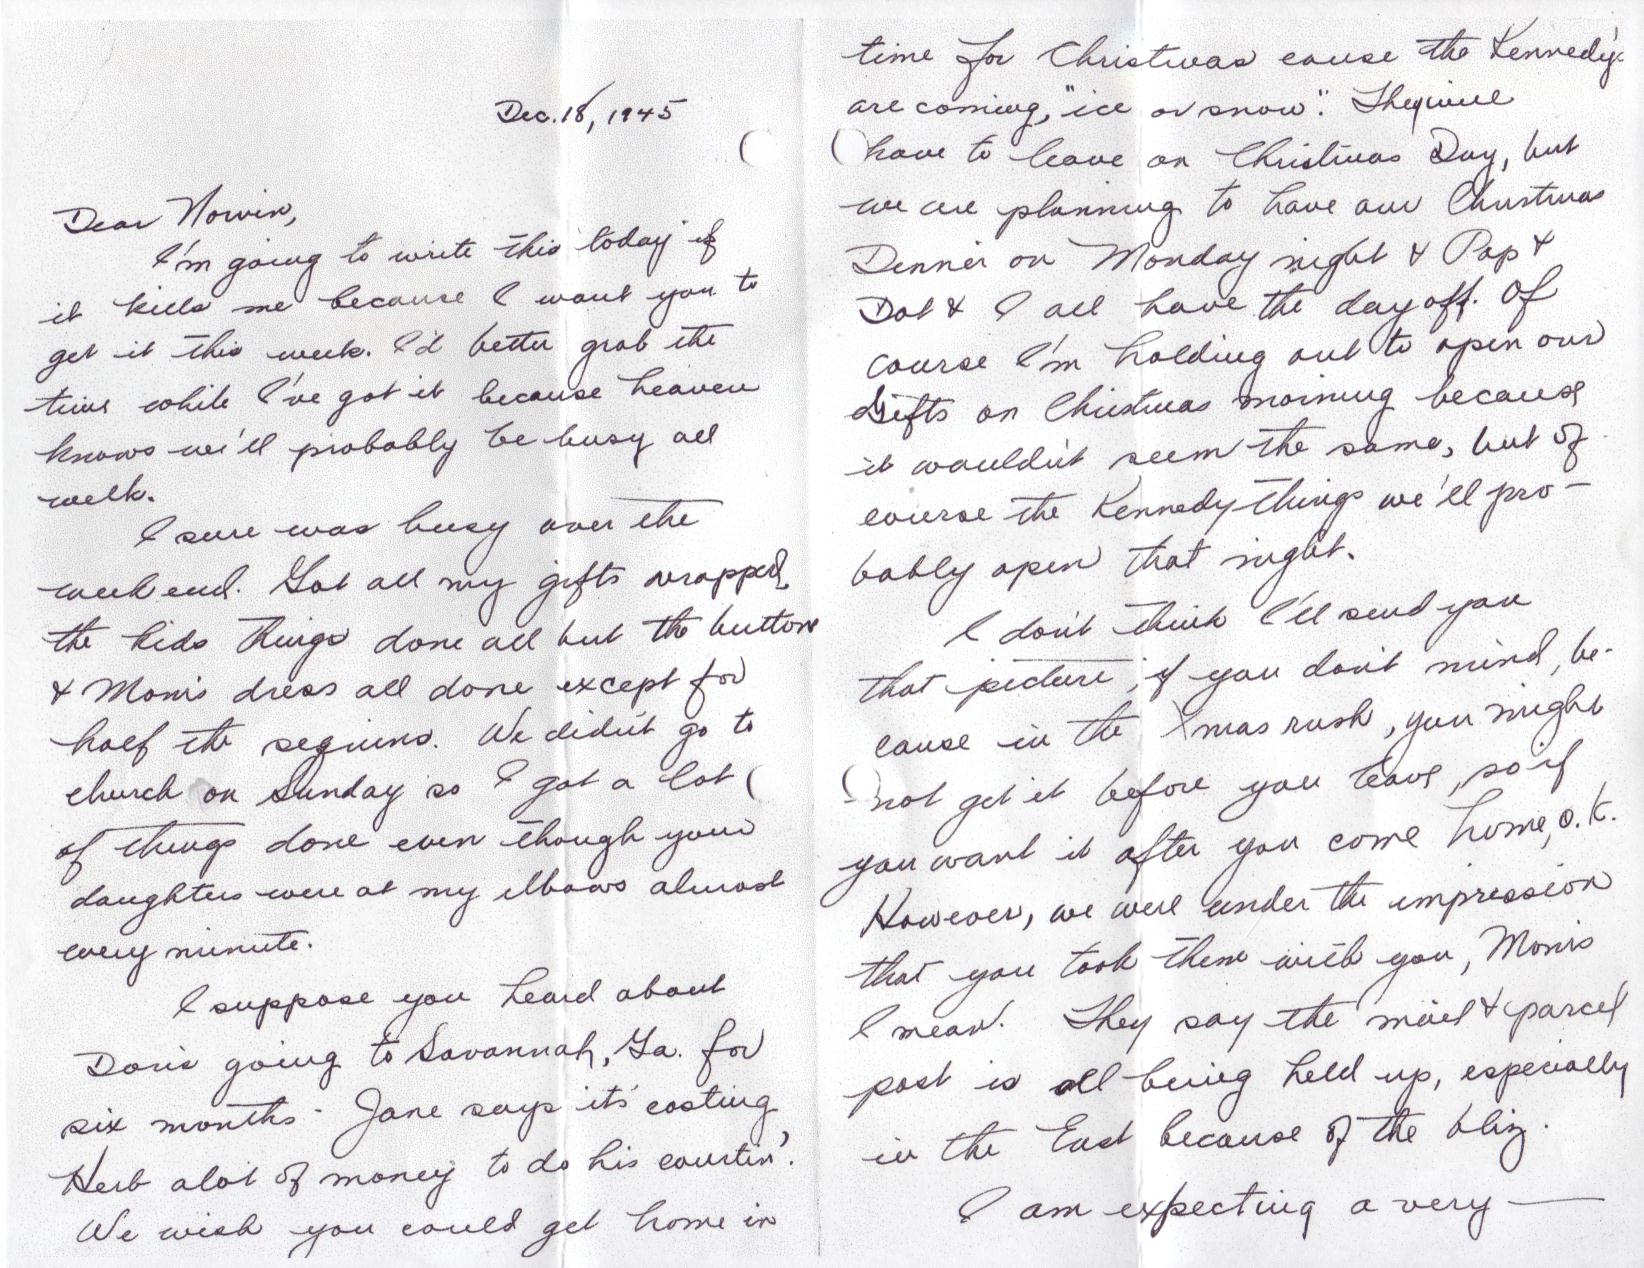 Dec. 18, 1945
Dear Norvin,
I'm going to write this today if
it kills me because I want you to
get it this week. I'd better grab the
time while I've got it because heaven
knows we'll probably be busy all
week.
I sure was busy over the
week end. Got all my gifts wrapped,
the kids things done all but the buttons
& Mom's dress all done except for
half the sequins. We didn't go to
church on Sunday so I got a lot
of things done even though your
daughters were at my elbows almost
every minute.
I suppose you heard about
Doris going to Savannah, Ga. for
six months - Jane says it's costing
Herb alot of money to do his courtin'.
We wish you could get home in
time for Christmas cause the Kennedy's
are coming, "ice or snow". They will
have to leave on Christmas Day, but
we are planning to have our Christmas
Dinner on Monday night & Pop &
Dot & I all have the day off. Of
course I'm holding out to open our
Gifts on Christmas morning because
it wouldn't seem the same, but of
course the Kennedy things we'll pro-
bably open that night.
I don't think I'll send you
that picture, if you don't mind, be-
cause in the Xmas rush, you might
not get it before you leave, so if
you want it after you come home, o.k.
However, we were under the impression
that you took them with you, Mom's
I mean. They say the mail & parcel
post is all being held up, especially
in the East because of the bliz.
I am expecting a very —